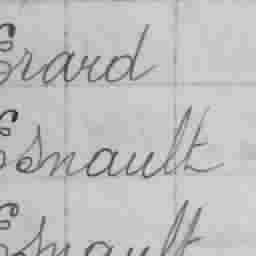 Erard
Esnault
Esnault